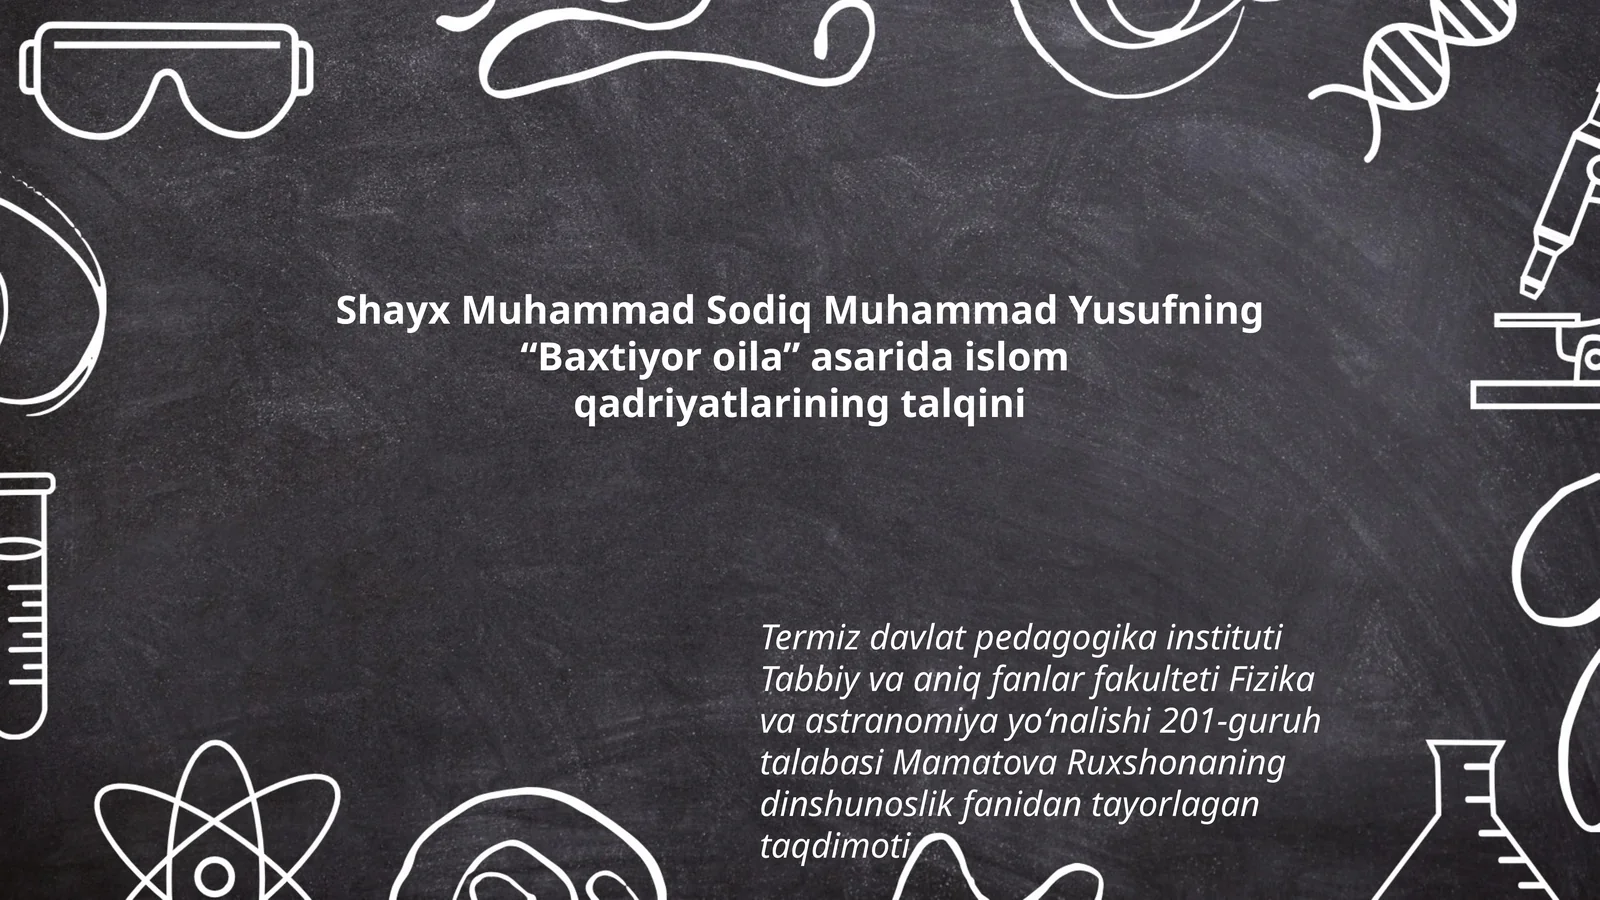 Shayx Muhammad Sodiq Muhammad Yusufning
“Baxtiyor oila” asarida islom
qadriyatlarining talqini
Termiz davlat pedagogika instituti
Tabbiy va aniq fanlar fakulteti Fizika
va astranomiya yo‘nalishi 201-guruh
talabasi Mamatova Ruxshonaning
dinshunoslik fanidan tayorlagan
taqdimoti